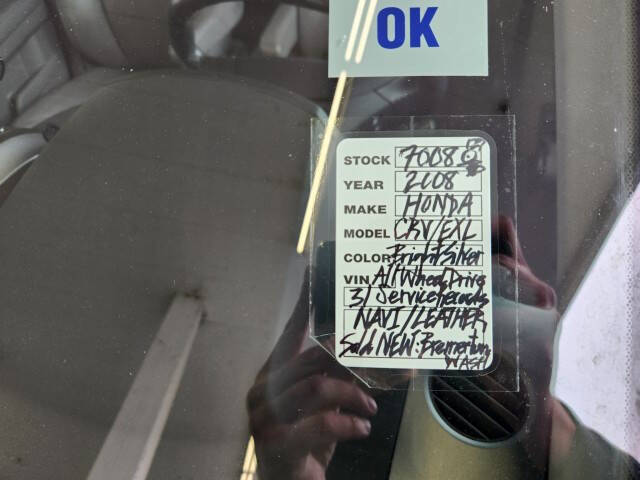 OK
STOCK 7008
YEAR 2008
MAKE HONDA
MODEL CRV/EXL
COLOR Bright Silver
VIN All Wheel Drive
31 Service records
NAVI/LEATHER
Sold NEW: Bremerton,
WASH